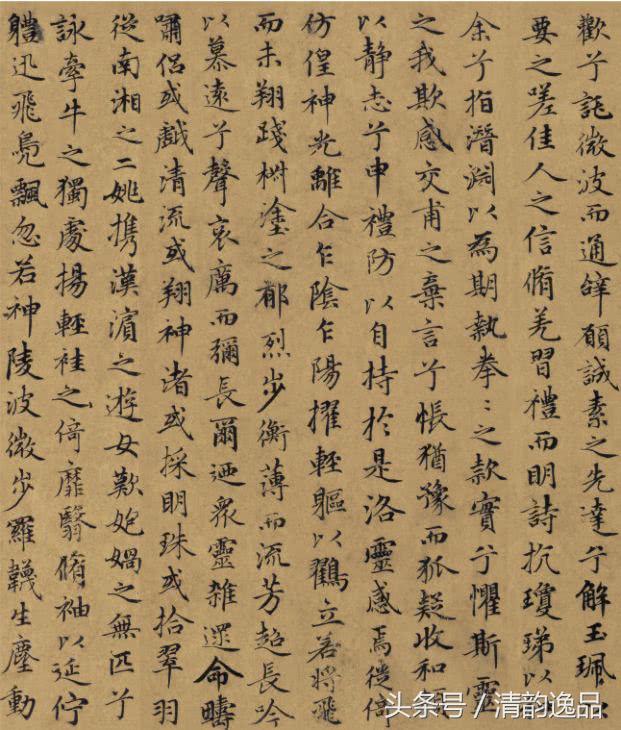 歡兮託微波而通辝願誠素之先達兮解玉珮
要之嗟佳人之信脩羌習禮而明詩抗瓊珶以
余兮指潛淵以為期執拳〻之款實兮懼斯靈
之我欺感交甫之棄言兮悵猶豫而狐疑收和
以静志兮申禮防以自持於是洛靈感焉徙倚
仿偟神光離合乍陰乍陽擢輕軀以鶴立若將飛
而未翔踐椒塗之郁烈步衡薄而流芳超長吟
以慕遠兮聲哀厲而彌長爾迺衆靈雜遝命疇
嘯侶或戲清流或翔神渚或採明珠或拾翠羽
從南湘之二姚携漢濱之遊女歎匏媧之無匹兮
詠牽牛之獨處揚輕袿之倚靡翳脩袖以延佇
軆迅飛鳧飄忽若神陵波微步羅韈生塵動
头条号 / 清韵逸品